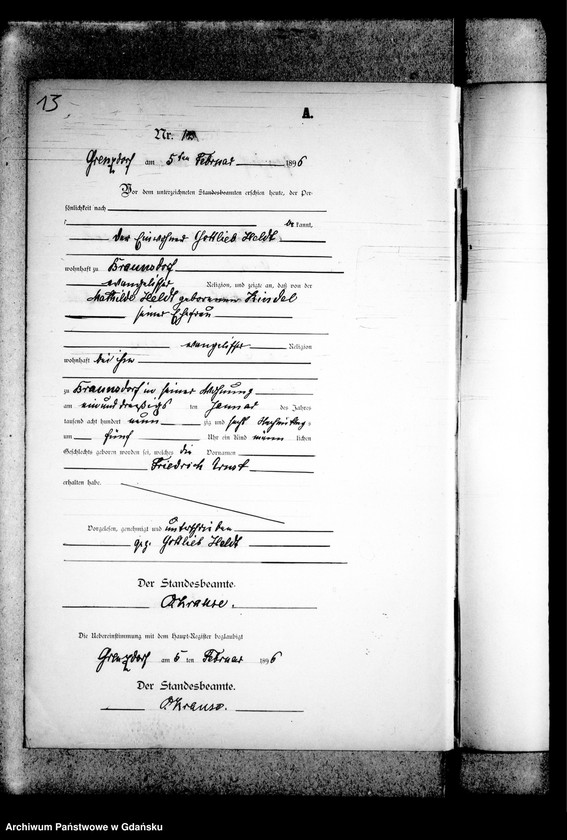 13
A.
Nr.
Grenzdorf am 5ten Februar 1896
Vor dem unterzeichneten Standesbeamten erschien heute, der Per-
sönlichkeit nach
be kannt,
der Einwohner Gottlieb Heldt
wohnhaft zu Braunsdorf
evangelischer Religion, und zeigte an, daß von der
Mathilde Heldt geborenen
seiner Ehefrau
evangelischer Religion
wohnhaft bei ihm
zu Braunsdorf in seiner Wohnung
am einunddreißigsten Januar des Jahres
tausend acht hundert neunzig und sechs Nachmittags
um fünf Uhr ein Kind männlichen
Geschlechts geboren worden sei, welches die Vornamen
Friedrich Ernst
erhalten habe.
Vorgelesen, genehmigt und unterschrieben
gez. Gottlieb Heldt
Der Standesbeamte.
Krause.
Die Uebereinstimmung mit dem Haupt-Register beglaubigt
Grenzdorf am 5ten Februar 1896
Der Standesbeamte.
Krause.
Archiwum Państwowe w Gdańsku